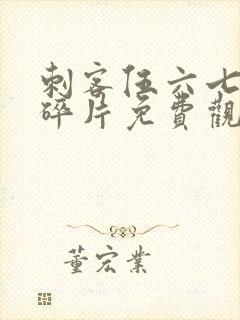 刺客伍六七
碎片免費觀
董宏業